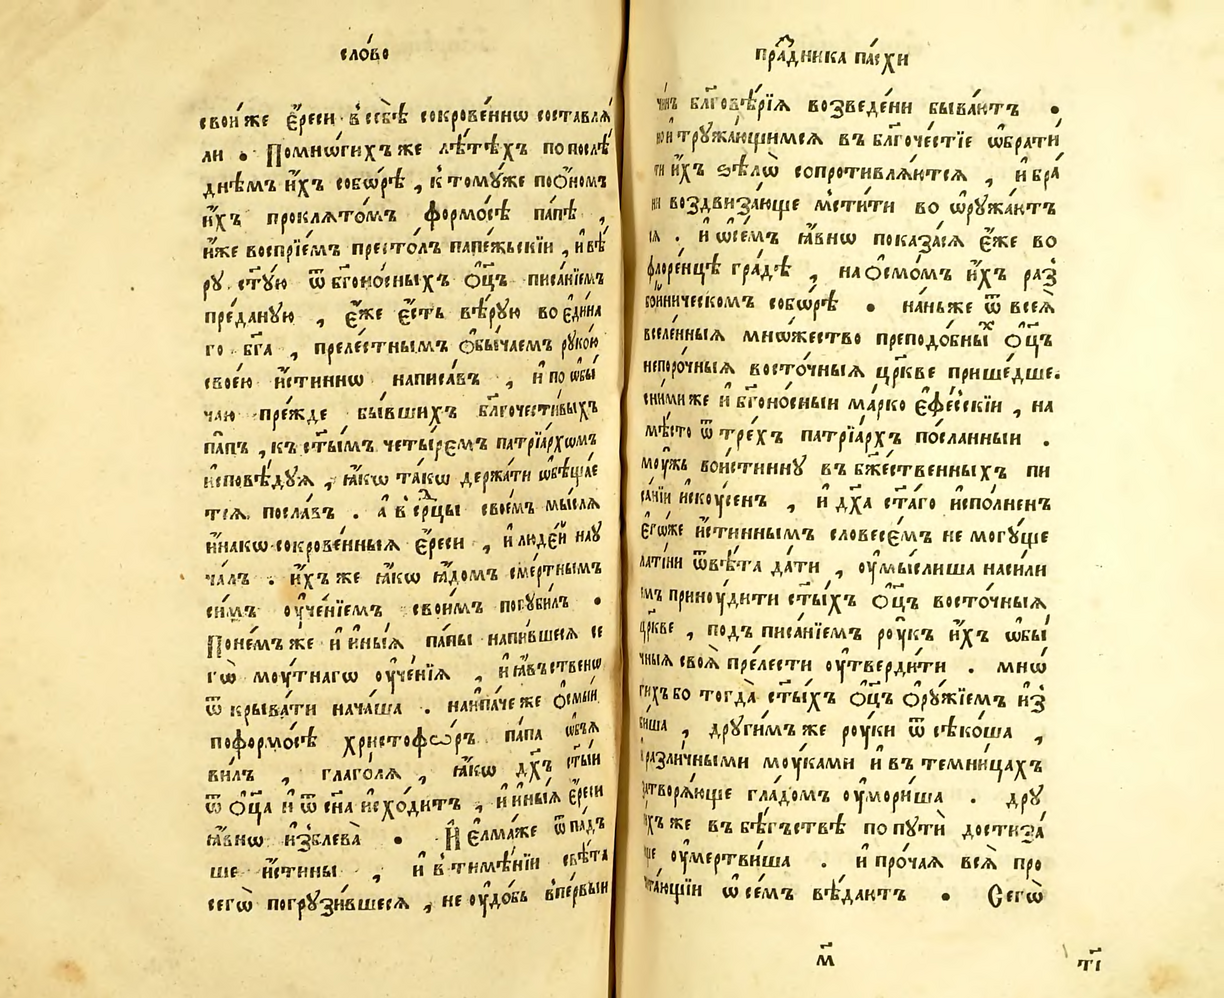 сло́во
свои́ же є҆́реси в себѣ̀ сокрове́нно составлѧ́
ли . Помно́гихъ же лѣ́тѣхъ по послѣ́
днѣмъ и҆́хъ собо́рѣ , к томꙋ́же по ѻ҆́номъ
и҆́хъ проклѧто́мъ формо́сѣ па́пѣ ,
и҆́же воспрїе́мъ престо́лъ папе́жьскїи , и҆ вѣ́
рꙋ ст҃ꙋ́ю ѿ бг҃оно́сныхъ ѻ҆ц҃ъ писа́нїемъ
пре́данꙋю , є҆́же є҆́сть вѣ́рꙋю во є҆ди́на
го бг҃а , пре́лестнымъ ѻ҆бы́чаемъ рꙋко́ю
свое́ю и҆́стинно написа́въ , и҆ по ѡ҆бы́
чаю пре́жде бы́вшихъ бл҃гочести́выхъ
па́пъ , къ ст҃ы́мъ четы́рємъ патрїа́рхѡмъ
и҆сповѣ́дꙋѧ , ꙗ҆́кѡ та́кѡ держа́ти ѡ҆бѣща́е
тсѧ посла́въ . а҆ в се́рцы свое́мъ мы́слѧ
и҆́накѡ сокрове́нныѧ є҆́реси , и҆ люде́й наꙋ
ча́лъ . и҆́хъ же ꙗ҆́кѡ ꙗ҆́домъ сме́ртнымъ
си́мъ ᲂу҆че́нїемъ свои́мъ погꙋби́лъ .
Поне́мъ же и҆ и҆ны́ѧ па́пы напи́вшесѧ се
гѡ̀ мᲂу́тнагѡ ᲂу҆че́нїѧ , и҆ ꙗ҆́вьственѡ
ѿкрыва́ти нача́ша . наипа́че же ѻ҆смы́и
по формо́сѣ христофо́ръ па́па ѡ҆б̾ѧ
ви́лъ , глаго́лѧ , ꙗ҆́кѡ дх҃ъ ст҃ы́и
ѿ ѻ҆ц҃а̀ и҆ ѿ сн҃а и҆схо́дитъ , и҆ и҆ны́ѧ є҆́реси
ꙗ҆́внѡ и҆зблева̀ . И҆ є҆лма́же ѿпа́дъ
ше и҆́стины , и҆ в тимѣ́нїи свѣ́та
сегѡ̀ погрꙋзи́вшесѧ , не ᲂу҆до́бь в пе́рвыи
пра́здника па́схи
чи́нъ бл҃говѣ́рїѧ возведе́ни быва́ютъ .
но и҆ трꙋжа́ющимсѧ въ бл҃гоче́стїе ѡ҆брати́
ти и҆́хъ ѕѣлѡ̀ сопротивлѧ́ютсѧ , и҆ бра́
ни воздвиза́юще мсти́ти во ѡ҆рꙋжа́ютъ
сѧ . и҆ ѡ҆ се́мъ ꙗ҆́внѡ показа́сѧ є҆́же во
флоре́нцѣ гра́дѣ , на ѻ҆смо́мъ и҆́хъ раз̾
бо́йническомъ собо́рѣ . на́ньже ѿ всеѧ̀
вселе́нныѧ мно́жество преподо́бныхъ ѻ҆ц҃ъ
непоро́чныѧ восто́чныѧ цр҃кве прише́дше.
сни́ми же и҆ бг҃оно́сныи ма́рко є҆фе́сскїи , на
мѣ́сто ѿ тре́хъ патрїа́рхъ по́сланныи .
мᲂу́жь вои́стиннꙋ въ бж҃е́ственныхъ пи
са́нїи и҆скᲂу́сенъ , и҆ дх҃а ст҃а́го и҆спо́лненъ
є҆гѡ́же и҆́стиннымъ словесе́мъ не могꙋ́ще
лати́ни ѿвѣ́та да́ти , ᲂу҆мы́слиша наси́ли
емъ принᲂу́дити ст҃ы́хъ ѻ҆ц҃ъ восто́чныѧ
цр҃кве , подъ писа́нїемъ рᲂу́къ и҆́хъ ѡ҆бы́
чныѧ своѧ̀ пре́лести ᲂу҆тверди́ти . мнѡ́
гихъ бо тогда̀ ст҃ы́хъ ѻ҆ц҃ъ ѻ҆рꙋ́жїемъ и҆з̾
би́ша , дрꙋги́мъ же рᲂу́ки ѿсѣко́ша ,
и҆ разли́чными мᲂу́ками и҆ въ темни́цахъ
затворѧ́юще гла́домъ ᲂу҆мори́ша . дрꙋ
ги́хъ же въ бѣ́гъствѣ по пꙋтѝ достиза́
юще ᲂу҆мертви́ша . и҆ про́чаѧ всѧ̀ про
чита́ющїи ѡ҆ се́мъ вѣ́даютъ . Сегѡ̀
м҃ т҃і